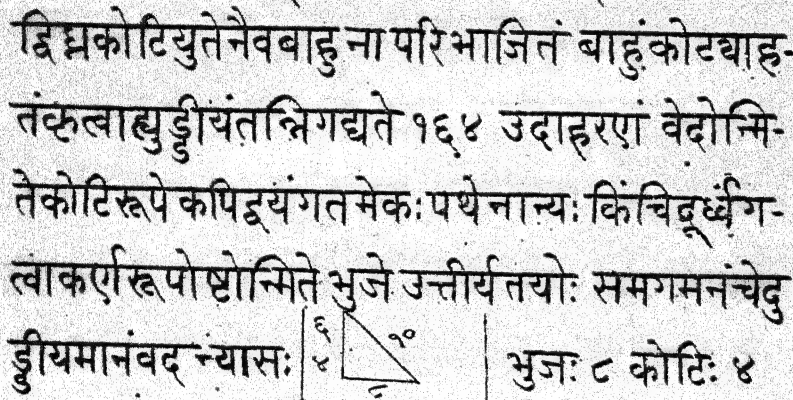 द्विघ्नकोटियुतेनैवबाहुना परिभाजितं बाहुंकोट्याह-
तंकृत्वाह्युड्डीयंतन्निगद्यते १६४ उदाहरणं वेदोन्मि-
तेकोटिरूपे कपिद्वयंगतमेकः पथेनान्यः किंचिदूर्ध्वंग-
त्वाकर्णरूपोष्टोन्मिते भुजे उत्तीर्य तयोः समगमनंचेदु
ड्डीयमानंवद न्यासः | ६ ४ १० ८ | भुजः ८ कोटिः ४